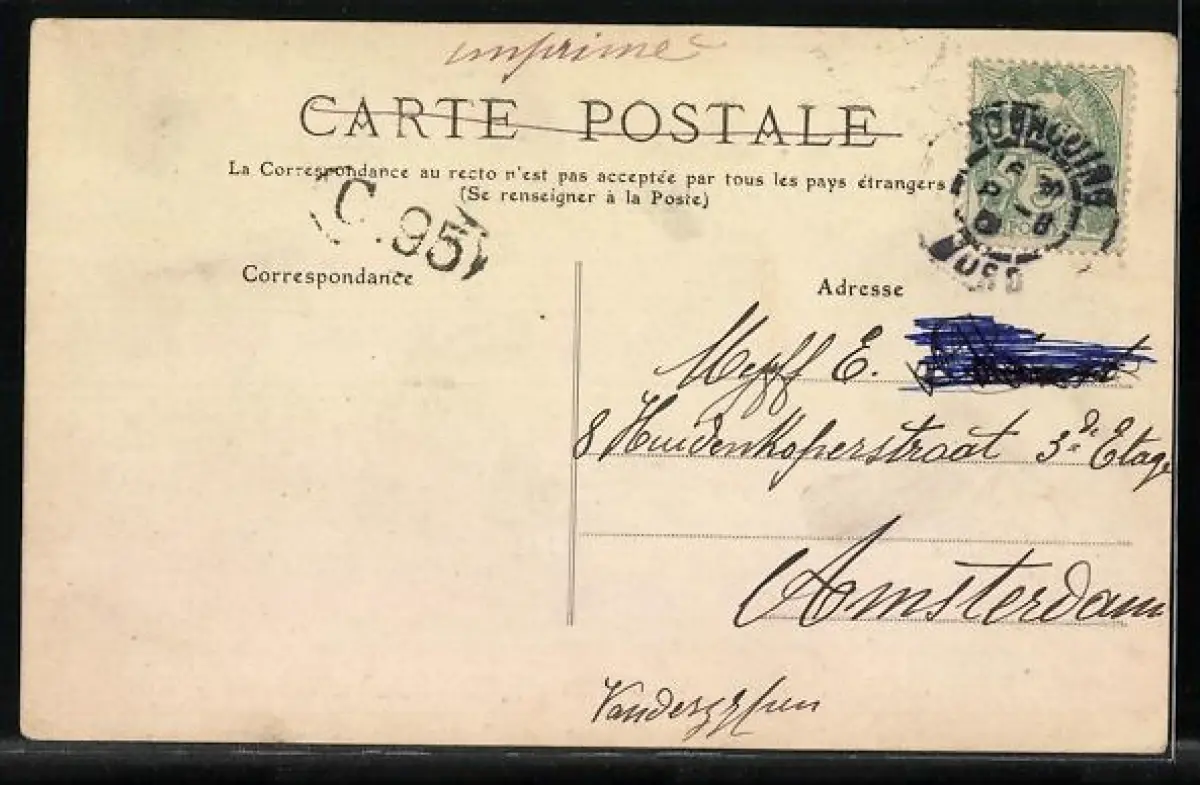 imprimé
CARTE POSTALE
La Correspondance au recto n'est pas acceptée par tous les pays étrangers
(Se renseigner à la Poste)
C. 95
Correspondance
Adresse
E.
8 Huidenkoperstraat 3de Etage
Amsterdam